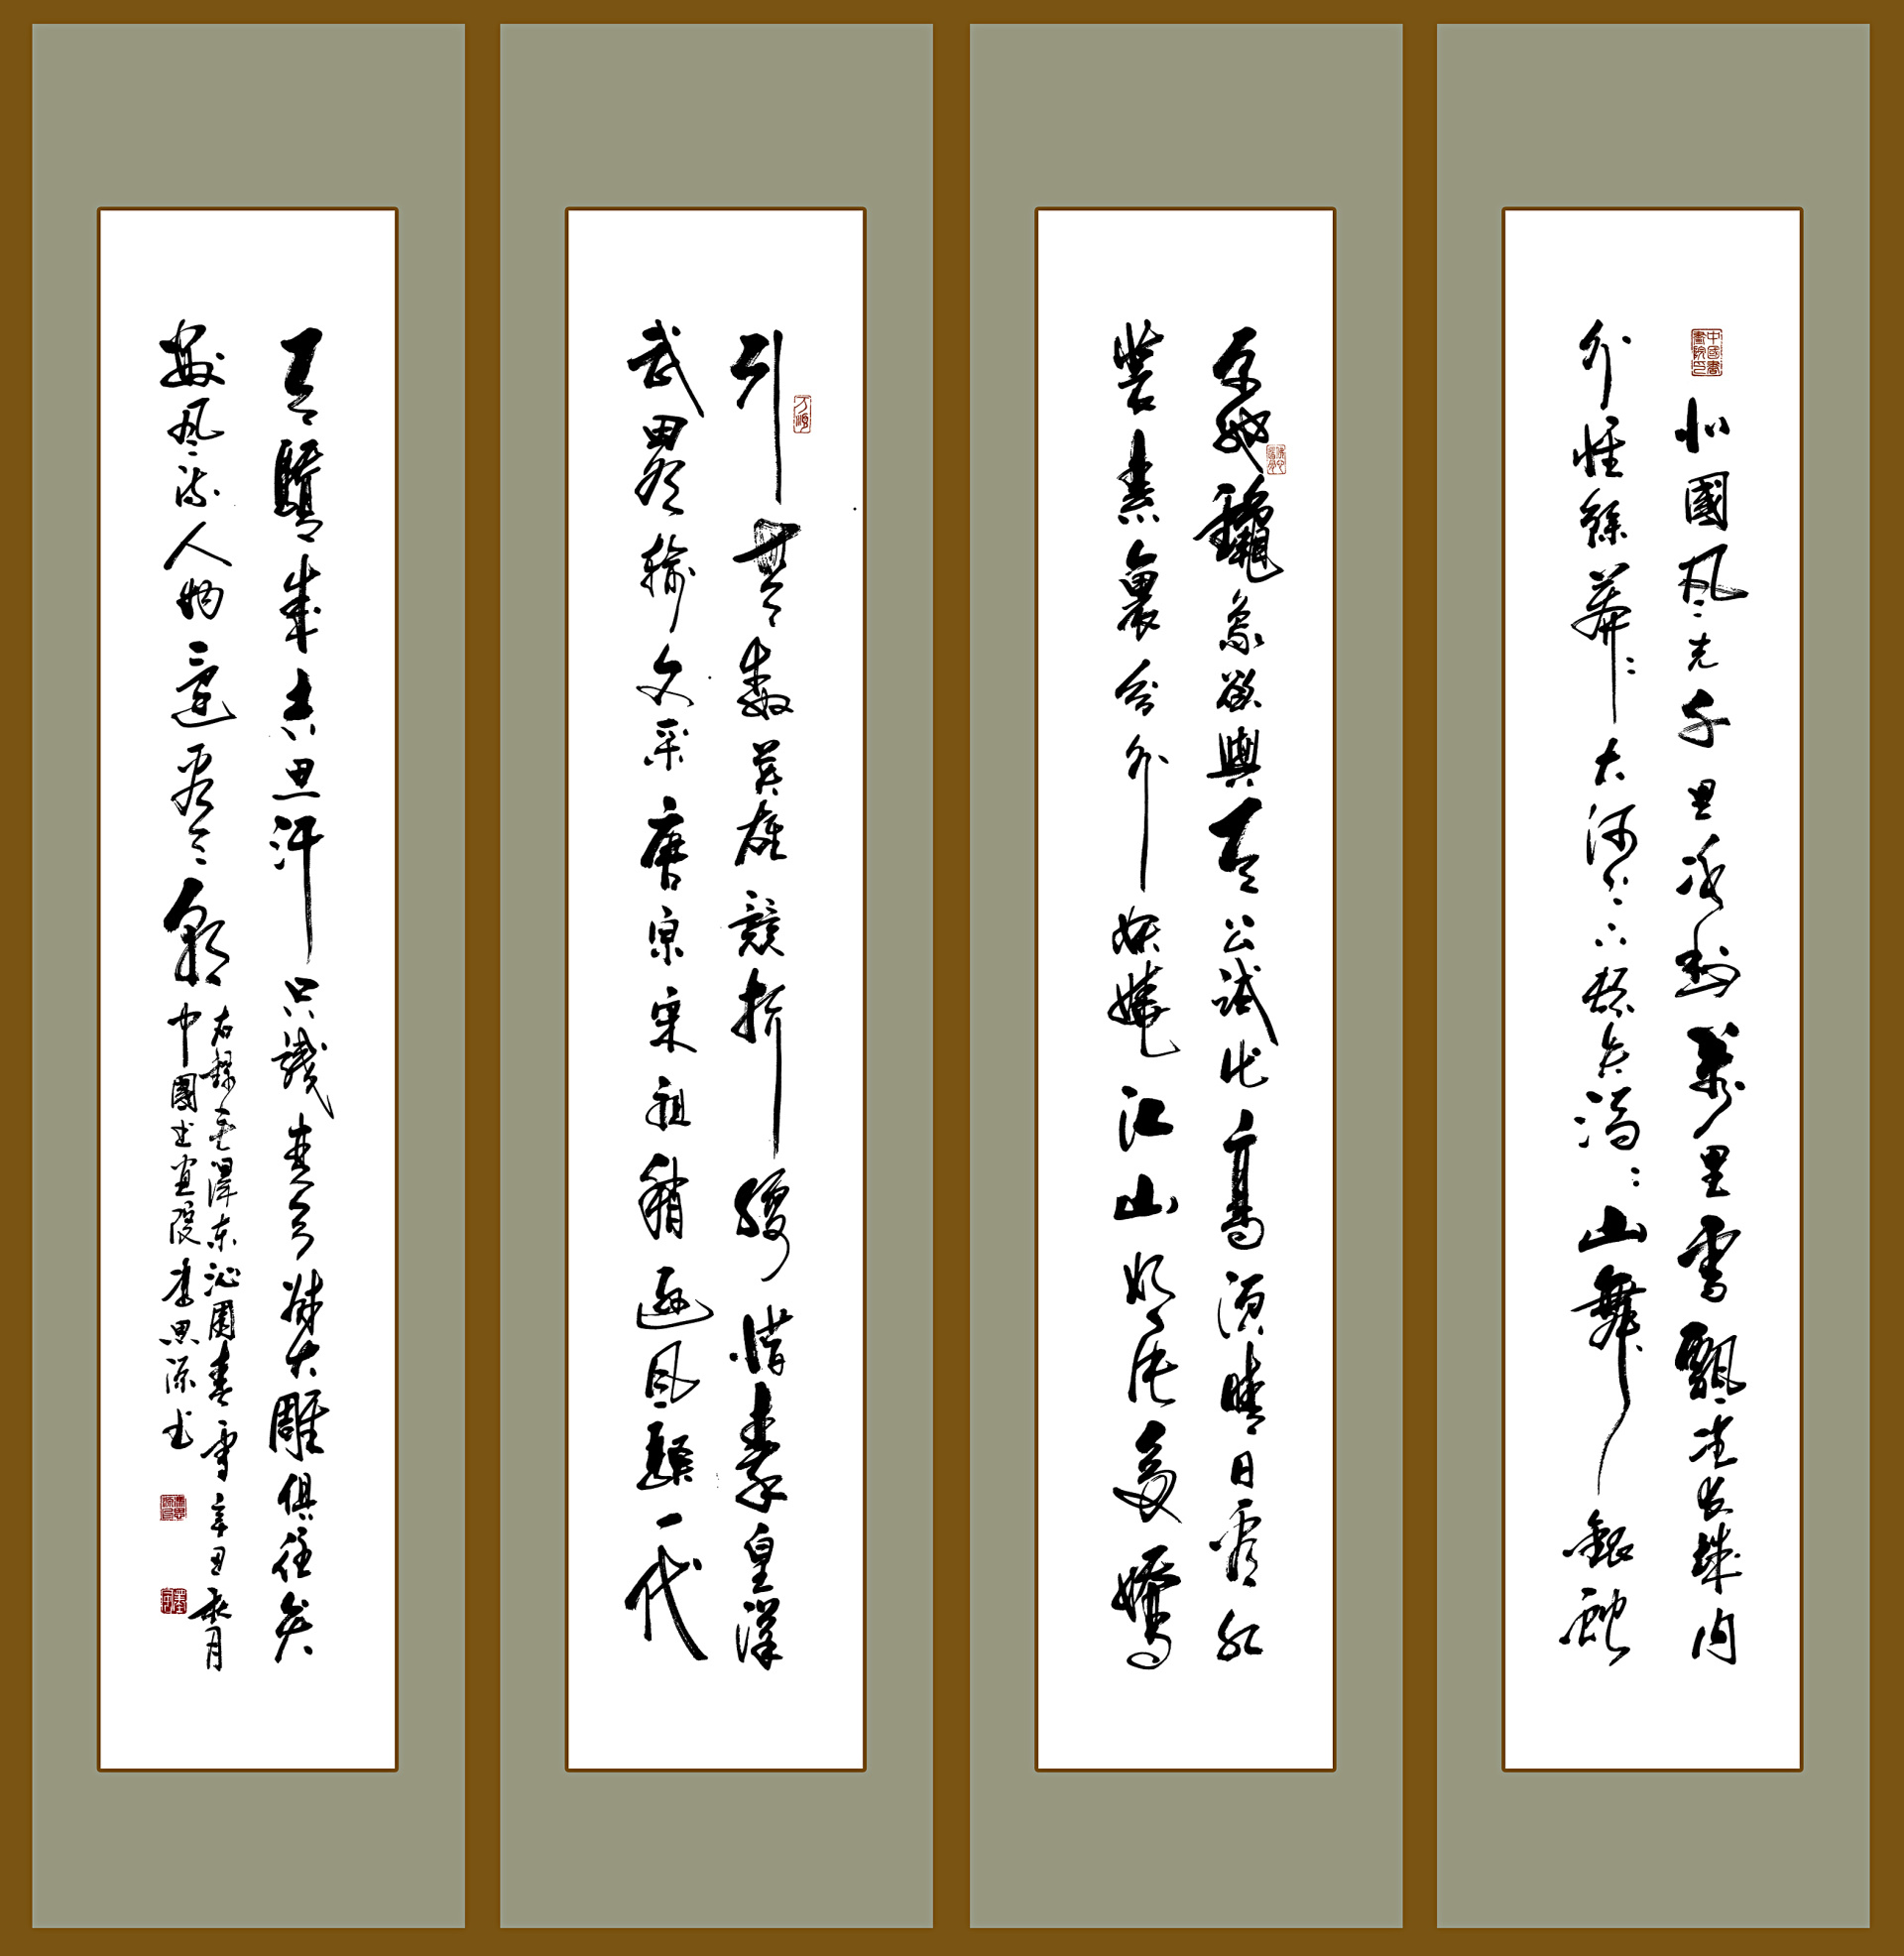 北國風光千里冰封萬里雪飄望長城内
外惟餘莽莽大河上下頓失滔滔山舞銀蛇
原馳蠟象欲與天公試比高須晴日看紅
裝素裹分外妖嬈江山如此多嬌
引無數英雄競折腰惜秦皇漢
武略輸文采唐宗宋祖稍遜風騷一代
天驕成吉思汗只識彎弓射大雕俱往矣
數風流人物還看今朝
右錄毛澤東沁園春雪辛丑秋月
中國书画院李思源书